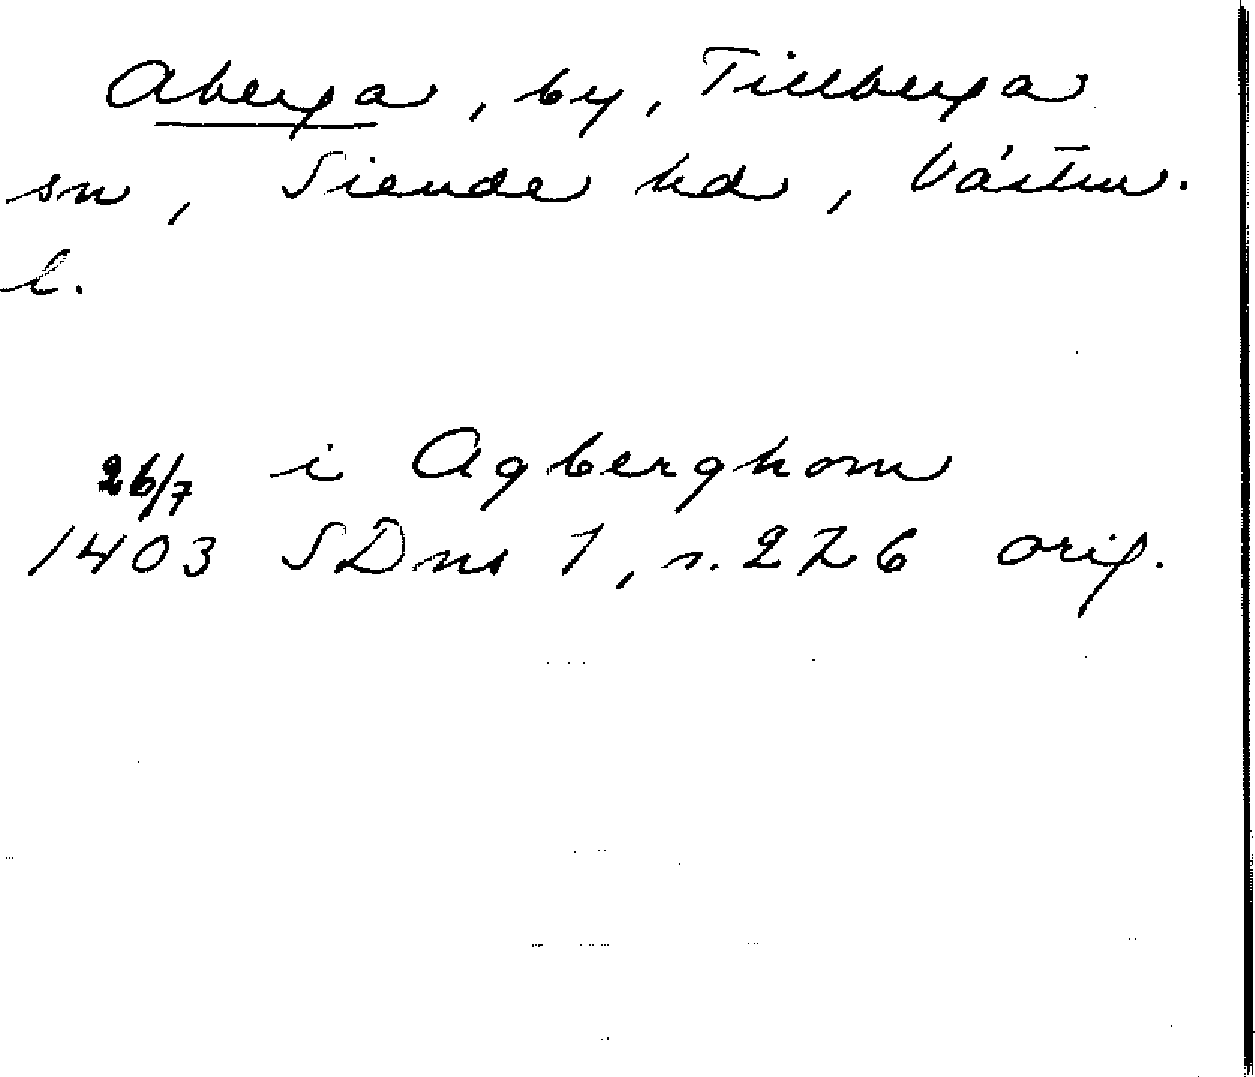 Aberga, by, Tillberga
sn, Siende hd, Västm.
l.
26/7 i Agberghom
1403 SDns 1, s. 226 orig.